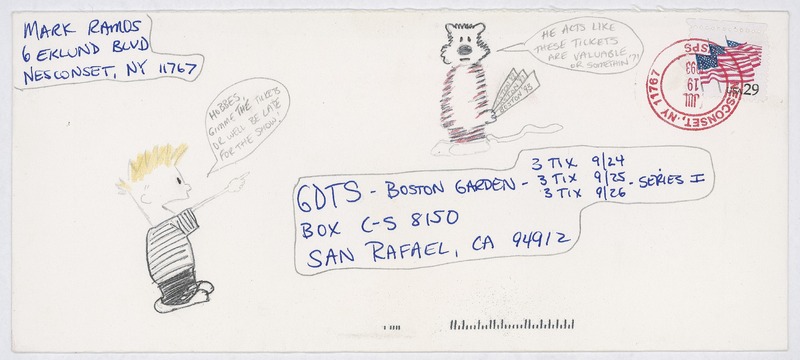 MARK RAMOS
6 EKLUND BLVD
NESCONSET, NY 11767
HE ACTS LIKE
THESE TICKETS
ARE VALUABLE
OR SOMETHIN'?!
HOBBES,
GIMME THE TICKETS
OR WE'LL BE LATE
FOR THE SHOW.
BOSTON 93
NESCONSET, NY 11767
JUL
19
1993
USPS
29
GDTS - BOSTON GARDEN - 3 TIX 9/24
3 TIX 9/25 - SERIES I
3 TIX 9/26
BOX C-S 8150
SAN RAFAEL, CA 94912